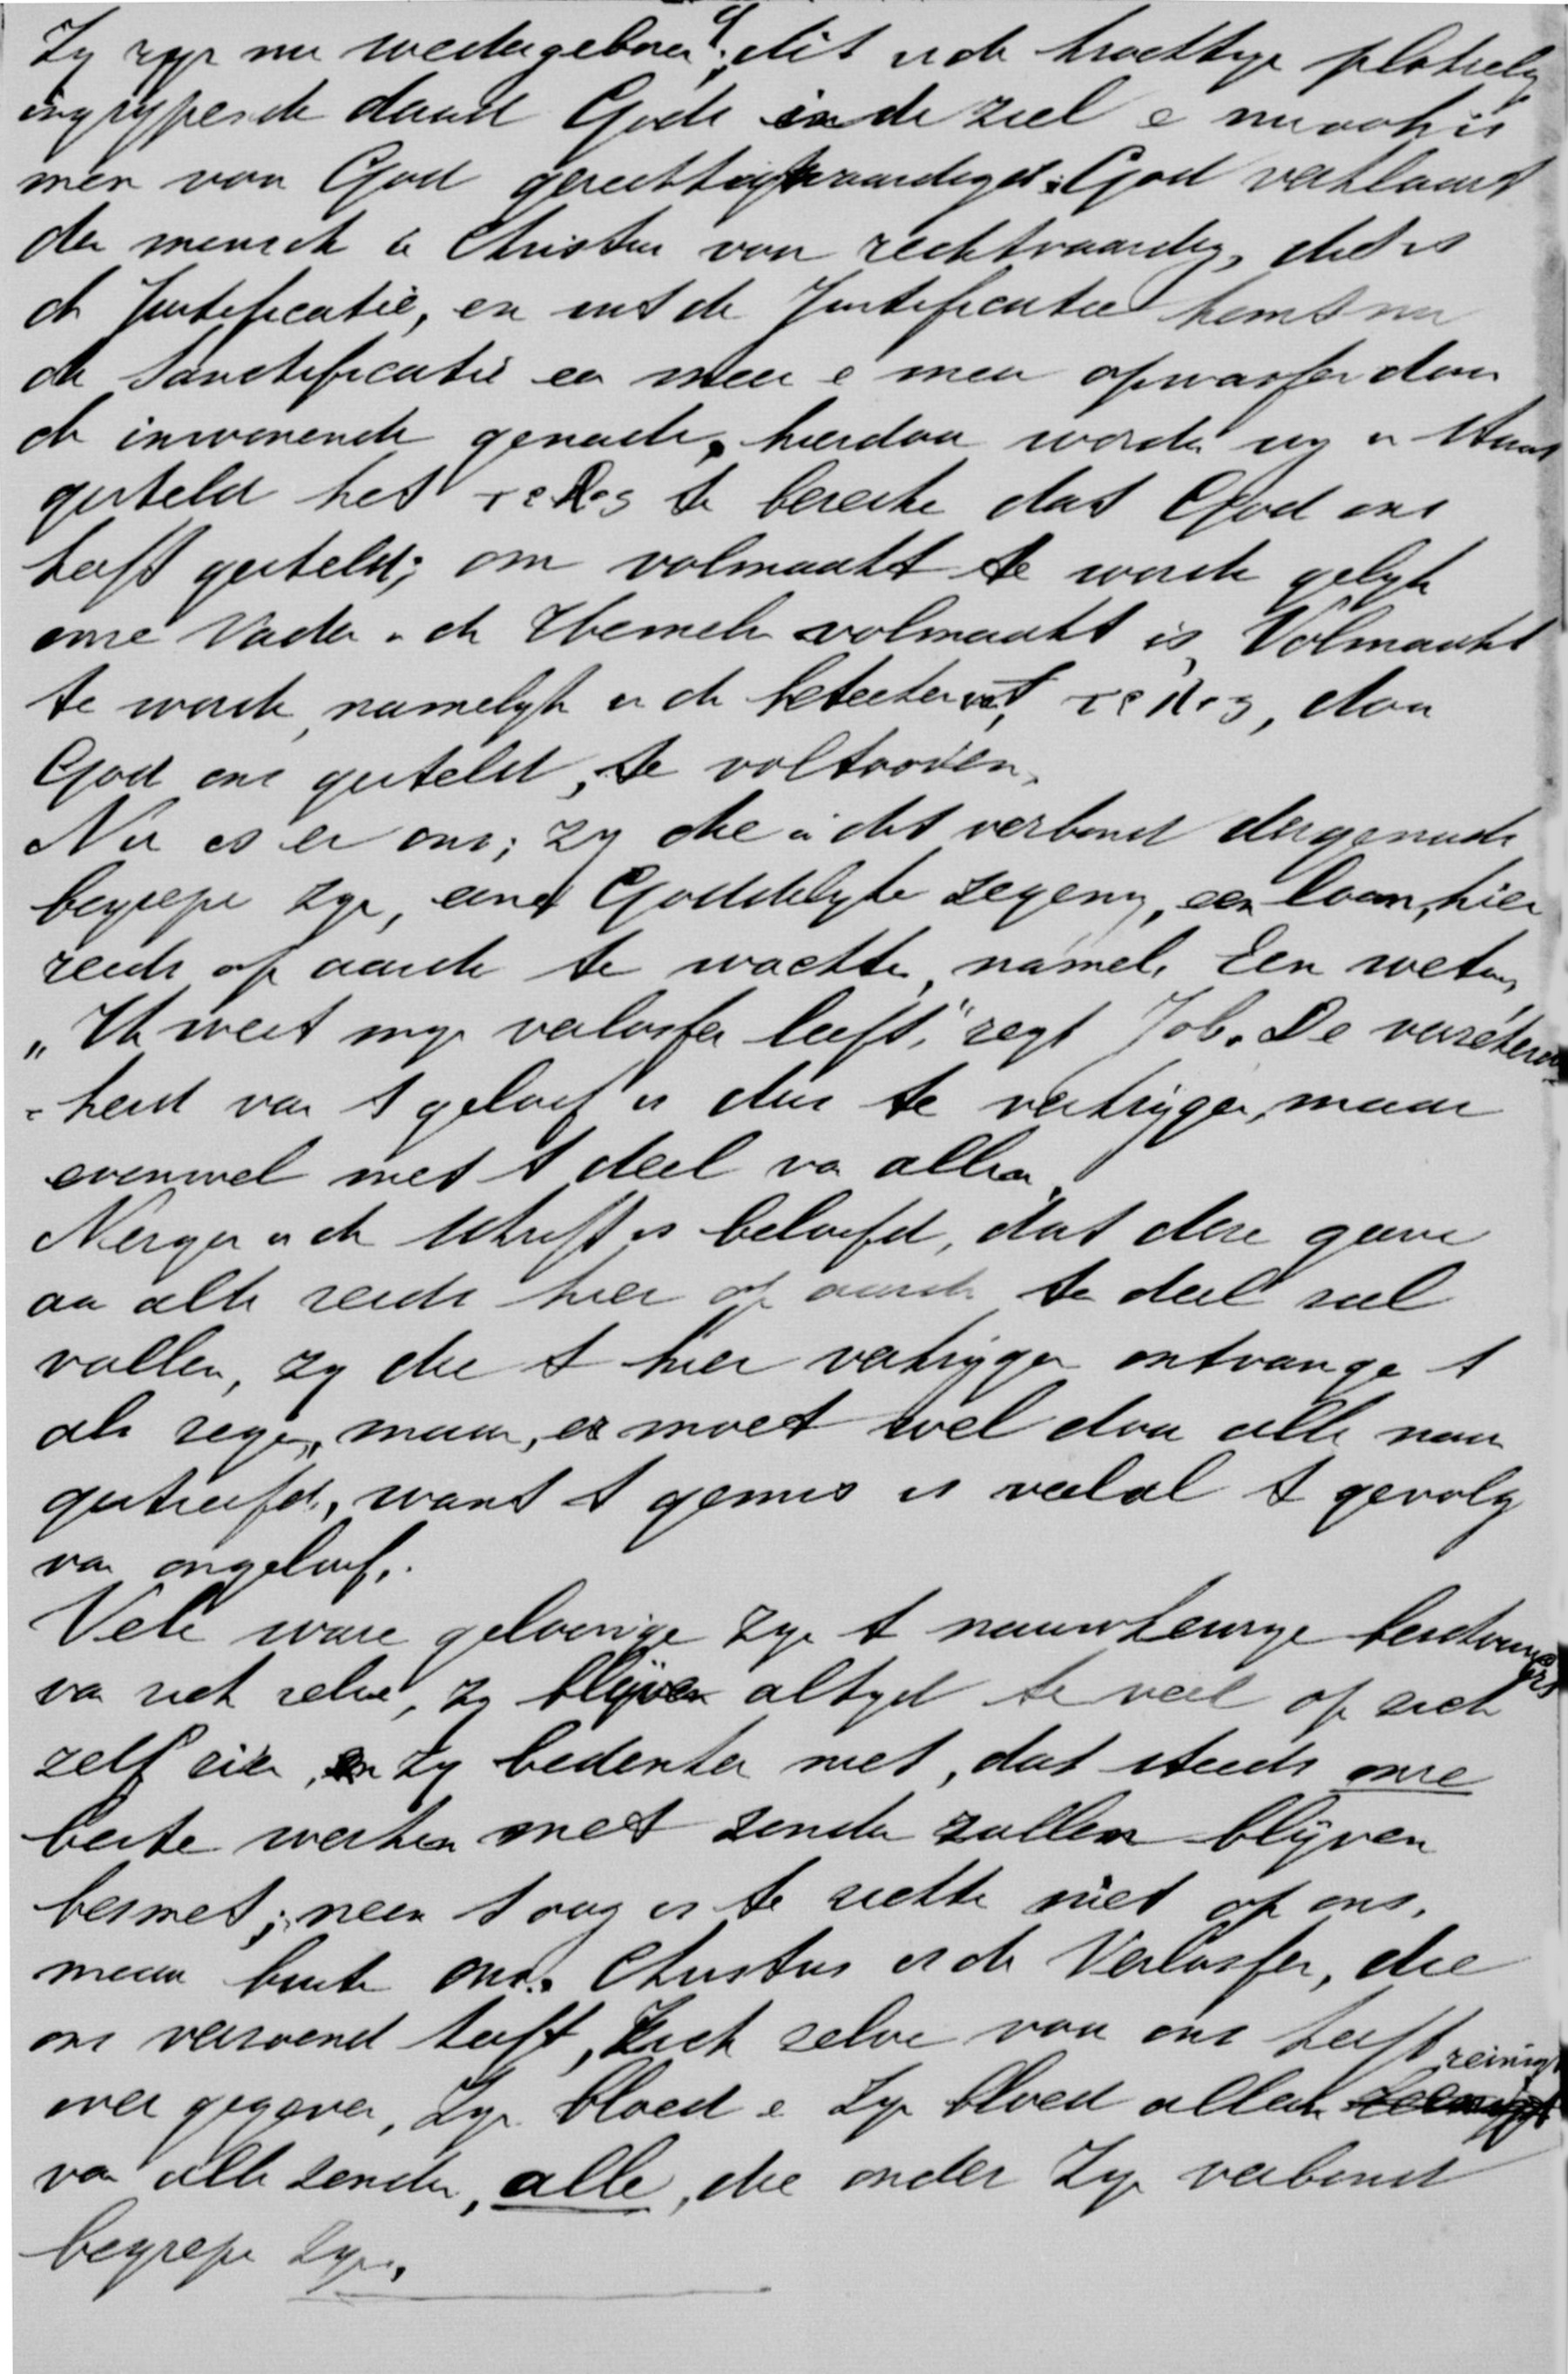 Zy zyn nu wedergeboren; dit is de krachtige plotselyk
ingrypende daad Gods in de ziel e nu ook is
men voor God gerechtvaardigd: God verklaard
den mensch in Christus voor rechtvaardig, dit is
de Justificatie, en uit de Justificatie komt nu
de Sanctificatie een meer e meer opwassen door
de inwonende genade, hierdoor worden wy in staat
gesteld het τελος te bereike dat God ons
heeft gesteld; om volmaakt te worde gelyk
onze Vader in de Hemele volmaakt is, Volmaakt
te worde, namelyk in de beteekenis v. τελος, door
God ons gesteld, te voltooien.
Nu is er ons; zy die in dit verbond der genade
begrepe zyn, eene Goddelyke zegeng, een loon, hier
reeds op aarde te wachte, namel. Een weten,
„Ik weet myn verlosser leeft," zegt Job. De verzekerd=
=heid van 't geloof is dus te verkrygen, maar
evenwel niet 't deel va allen.
Nergen in de Schrift is beloofd, dat deze gave
aa alle reeds hier op aarde te deel zal
vallen, zy die 't hier verkrygen ontvange 't
als zegen, maar, er moet wel door alle naar
gestreefd, want 't gemis is veelal 't gevolg
va ongeloof.
Vele ware geloovige zyn te nauwkeurige beschouwers
va zich zelve, zy blijven altyd te veel op zich
zelf zien, en zy bedenken niet, dat steeds onze
beste werken met zonde zullen blijven
besmet; neen 't oog is te richte niet op ons,
maar buite ons. Christus is de Verlosser, die
ons verzoend heeft, Zich zelve voor ons heeft
over gegeven, Zyn bloed e Zyn bloed alleen reinigt
va alle zonden, alle, die onder Zyn verbond
begrepe zyn.